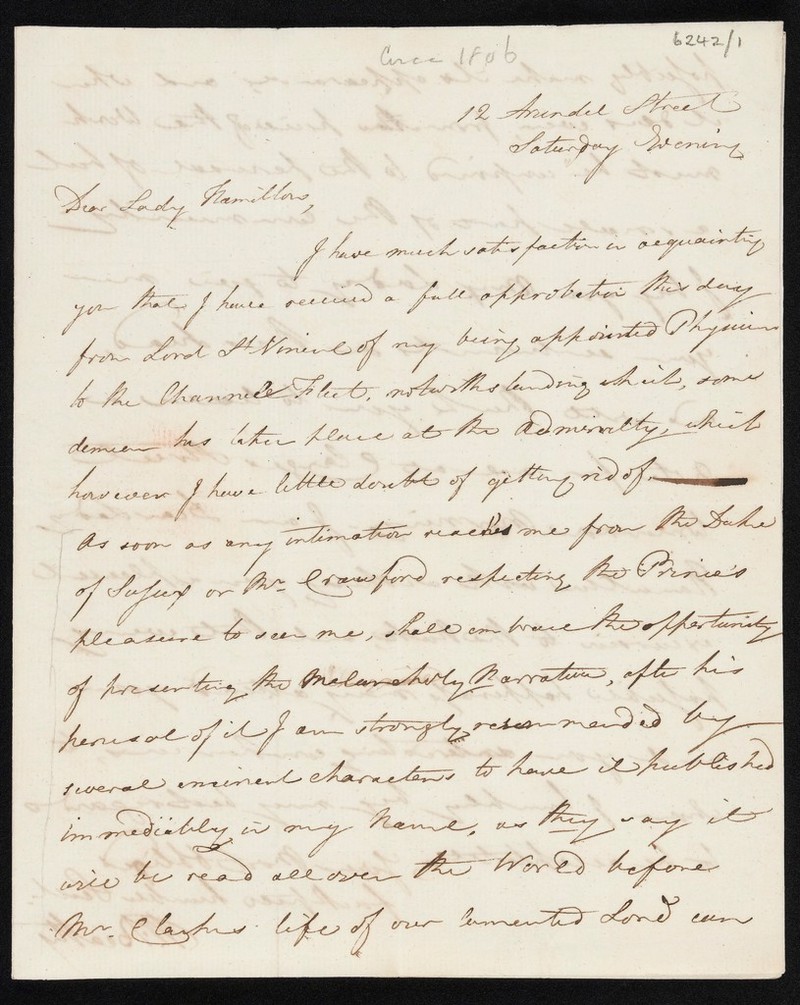 Circa 1806
6242/1
12 Arundel Street
Saturday Evening
Dear Lady Hamilton,
I have much satisfaction in acquainting
you that I have received a full approbation this day
from Lord St. Vincent of my being appointed Physician
to the Channel Fleet, notwithstanding which, some
demur has taken place at the Admiralty, which
however I have little doubt of getting rid of.
As soon as any intimation reaches me from the Duke
of Sussex or Mr. Crawford respecting the Prince's
pleasure to see me, shall embrace the opportunity
of presenting the Melancholy Narrative, after his
perusal of it I am strongly recommended by
several eminent characters to have it published
immediately in my Name, as they say it
will be read all over the World before
Mr. Clarkes life of our lamented Lord can